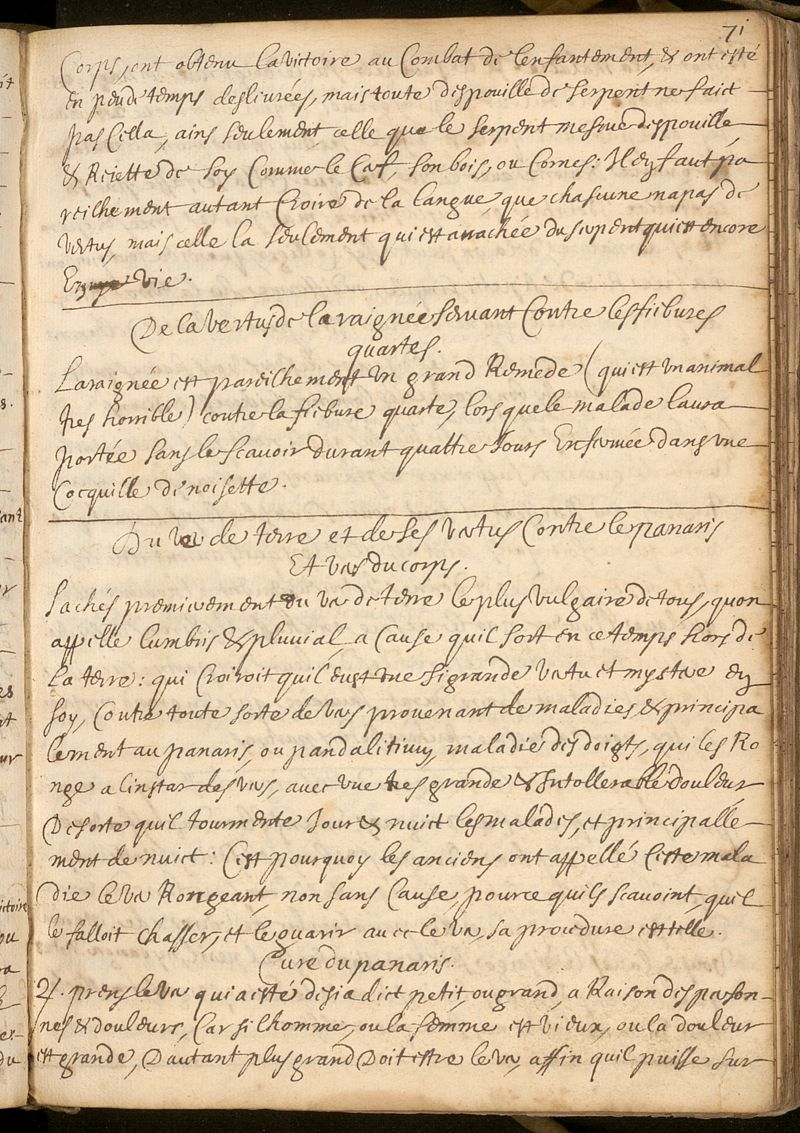 71
Corps, ont obtenu la victoire au Combat de lenfantement, & ont esté
en peu de temps desliurées, mais toute despouille de serpent ne faict
pas Cella, ains seulement celle que le serpent mesme despouille
& Reiette de soy Comme le Cerf, son bois, ou Cornes: Il ey faut pa
reilhement autant Croire de la langue, que chascune na pas de
vertus, mais celle la seulement qui est arrachée du serpent qui est encore
En vie.
De la vertus de laraignée seruant Contre les fiebures
quartes.
Laraignée est pareilhement vn grand Remede (qui est vn animal
tres horrible) contre la fiebure quarte, lors que le malade laura
portée sans le scauoir durant quattre Jours Enfermée dans vne
Cocquille de noisette.
Du ver de terre et de ses vertus Contre le panaris
Et vers du corps.
Sachés premierement du ver de terre le plus vulgaire de tous, quon
appelle lumbris & pluuial, a Cause quil sort en ce temps hors de
la terre: qui Croiroit quil eust vne si grande vertu et mystere ey
soy, Contre toute sorte de vers prouenant de maladies, & principa
lement au panaris, ou pandalitiuy, maladie des doigts, qui les Ro
nge a linstar des vers, auec vne tres grande & Intollerable douleur
De sorte quil tourmente Jour & nuict les malades, et principalle
ment de nuict: Cest pourquoy les anciens ont appellé Ceste mala
die le ver Rongeant, non sans Cause, pource quils scauoint, quil
le falloit chasser, et le guarir auec le ver, sa procedure est telle.
Cure du panaris.
♃. prens le ver qui a esté desia dict petit, ou grand, a Raison des person-
nes & douleurs, Car si lhomme, ou la femme est vieux, ou la douleur
est grande, Dautant plus grand Doit estre le ver, affin quil puisse sur